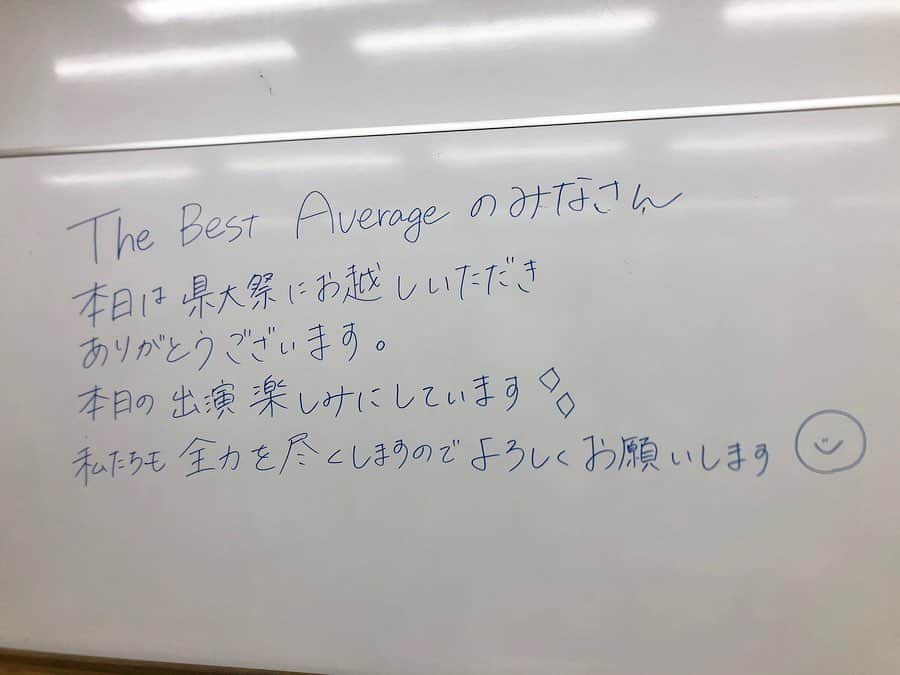 The Best Average のみなさん
本日は県大祭にお越しいただき
ありがとうございます。
本日の出演楽しみにしています
私たちも全力を尽くしますのでよろしくお願いします